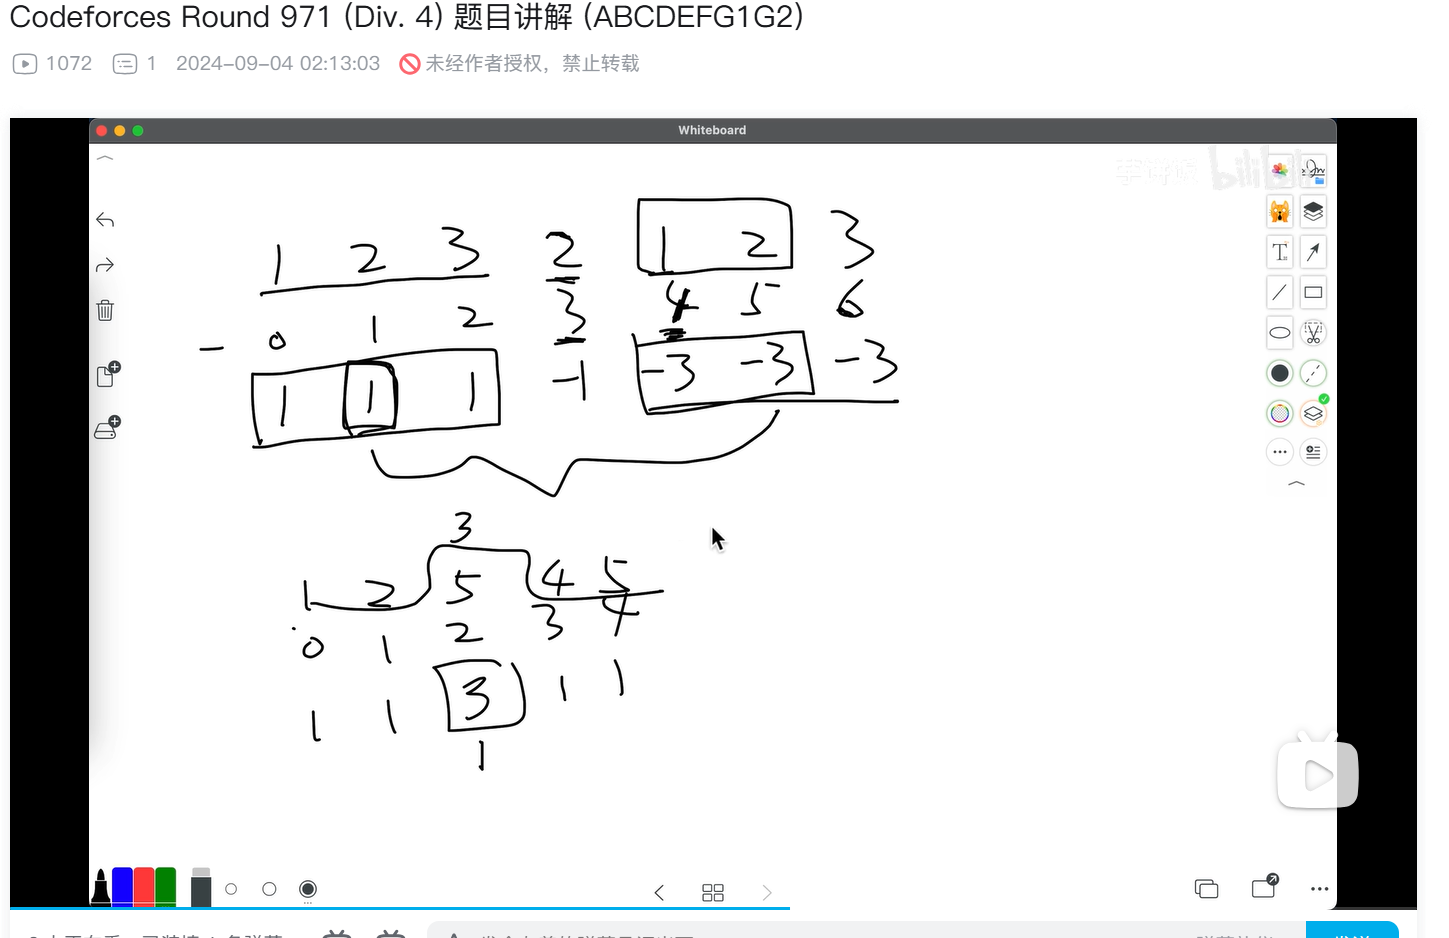 Codeforces Round 971 (Div. 4) 题目讲解 (ABCDEFG1G2)
1072 1 2024-09-04 02:13:03 未经作者授权，禁止转载
Whiteboard
bilibili
1 2 3 2 1 2 3
- 0 1 2 3 4 5 6
1 1 1 -1 -3 -3 -3
3
1 2 5 4 5
0 1 2 3 4
1 1 3 1 1
1